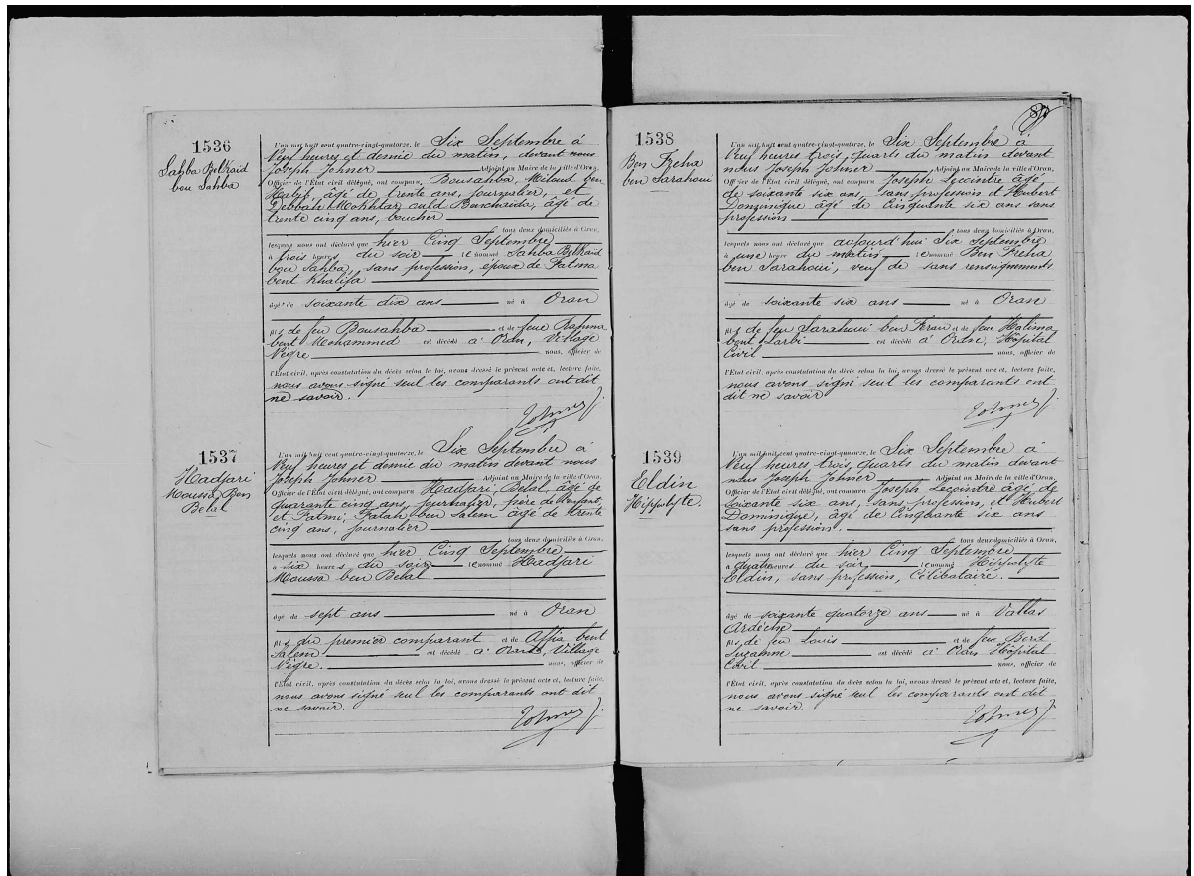 1536
Sahba Belkaid
bou Sahba
L'an mil huit cent quatre-vingt-quatorze, le Six Septembre à
Neuf heures et demie du matin, devant nous
Joseph Johner Adjoint au Maire de la ville d'Oran,
Officier de l'État civil délégué, ont comparu Bousahba, Miloud ben
âgé de trente ans, journalier, et
Mokhtar ould âgé de
trente cinq ans, boucher
tous deux domiciliés à Oran,
lesquels nous ont déclaré que hier Cinq Septembre
à trois heures du soir le nommé Sahba Belkaid
bou Sahba, sans profession, époux de Fatma
bent Khalifa
âgé de soixante dix ans né à Oran
fils de feu Bousahba et de feue
bent Mohammed est décédé à Oran, Village
Nègre nous, officier de
l'État civil, après constatation du décès selon la loi, avons dressé le présent acte et, lecture faite,
nous avons signé seul les comparants ont dit
ne savoir.
Johner J.
1537
Hadjari
Moussa Ben
Belal
L'an mil huit cent quatre-vingt-quatorze, le Six Septembre à
Neuf heures et demie du matin devant nous
Joseph Johner Adjoint au Maire de la ville d'Oran,
Officier de l'État civil délégué, ont comparu Hadjari, Belal, âgé de
quarante cinq ans, journalier, père de l'enfant,
et Fatmi, Salah ben Salem âgé de trente
cinq ans, journalier
tous deux domiciliés à Oran,
lesquels nous ont déclaré que hier Cinq Septembre
à six heures du soir le nommé Hadjari
Moussa ben Belal
âgé de sept ans né à Oran
fils du premier comparant et de Affia bent
Salem est décédé à Oran, Village
Nègre. nous, officier de
l'État civil, après constatation du décès selon la loi, avons dressé le présent acte et, lecture faite,
nous avons signé seul les comparants ont dit
ne savoir.
Johner J.
1538
Ben Freha
ben Sarahoui
L'an mil huit cent quatre-vingt-quatorze, le Six Septembre à
Neuf heures trois quarts du matin devant
nous Joseph Johner Adjoint au Maire de la ville d'Oran,
Officier de l'État civil délégué, ont comparu Joseph Lecointre âgé
de soixante six ans, sans profession et Hubert
Dominique âgé de Cinquante six ans sans
profession
tous deux domiciliés à Oran,
lesquels nous ont déclaré que aujourd'hui Six Septembre
à une heure du matin le nommé Ben Freha
ben Sarahoui, veuf de sans renseignements
âgé de soixante six ans né à Oran
fils de feu Sarahoui ben et de feue Halima
bent Larbi est décédé à Oran, Hôpital
Civil nous, officier de
l'État civil, après constatation du décès selon la loi, avons dressé le présent acte et, lecture faite,
nous avons signé seul les comparants ont
dit ne savoir
Johner J.
1539
Eldin
Hippolyte.
L'an mil huit cent quatre-vingt-quatorze, le Six Septembre à
Neuf heures trois quarts du matin devant
nous Joseph Johner Adjoint au Maire de la ville d'Oran,
Officier de l'État civil délégué, ont comparu Joseph Lecointre âgé de
soixante six ans, sans profession, et Hubert
Dominique, âgé de Cinquante six ans
sans profession.
tous deux domiciliés à Oran,
lesquels nous ont déclaré que hier Cinq Septembre
à quatre heures du soir le nommé Hippolyte
Eldin, sans profession, Célibataire.
âgé de soixante quatorze ans né à Vallas
Ardèche
fils de feu Louis et de feue Borel
Suzanne est décédé à Oran Hôpital
Civil nous, officier de
l'État civil, après constatation du décès selon la loi, avons dressé le présent acte et, lecture faite,
nous avons signé seul les comparants ont dit
ne savoir.
Johner J.